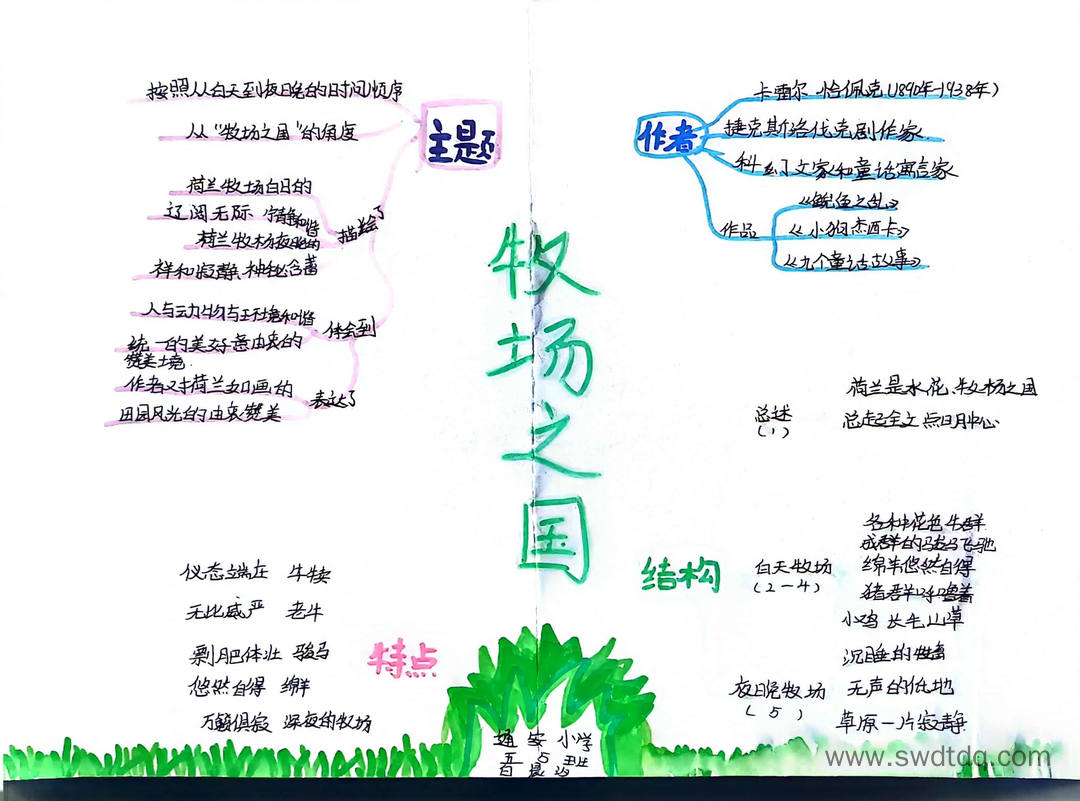 牧场之国
主题
按照从白天到夜晚的时间顺序
从“牧场之国”的角度
描绘了
荷兰牧场白日的
辽阔无际 宁静和谐
荷兰牧场夜晚的
祥和 神秘
体会到
人与动物与环境和谐
统一的美好意由衷的
赞美之境
表达了
作者对荷兰如画的
田园风光的由衷赞美
作者
卡雷尔·恰佩克(1890年-1938年)
捷克斯洛伐克剧作家
科幻文家和童话寓言家
作品
《鲵鱼之乱》
《小狗杰西卡》
《九个童话故事》
结构
总述
(1)
荷兰是水、花、牧场之国
总起全文 点明中心
白天牧场
(2-4)
各种花色牛群
成群的骏马飞驰
绵羊悠然自得
猪群呼噜着
小鸡 长毛山草
夜晚牧场
(5)
沉睡的牲畜
无声的低地
草原一片寂静
特点
仪态端庄 牛犊
无比威严 老牛
剽肥体壮 骏马
悠然自得 绵羊
万籁俱寂 深夜的牧场
通安小学
五5班
www.swdtdq.com